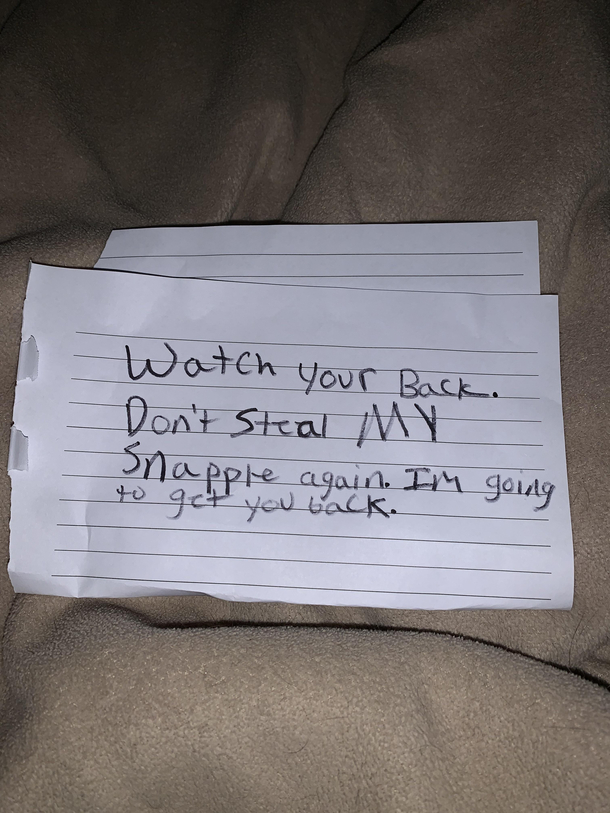 Watch your Back.
Don't Steal MY
Snapple again. I'm going
to get you back.